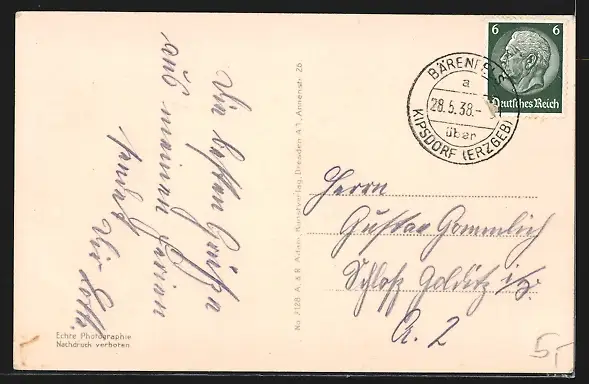 Die besten Grüße
aus meinen Ferien
sendet
Echte Photographie
Nachdruck verboten.
No. 3128 A. & R. Adam, Kunstverlag, Dresden A 1, Annenstr. 26
6 6
Deutsches Reich
BÄRENFELS
a
28.5.38.-
über
KIPSDORF (ERZGEB)
Herrn
Gustav Gommlich
Schloß Colditz i/S.
A. 2
5,-